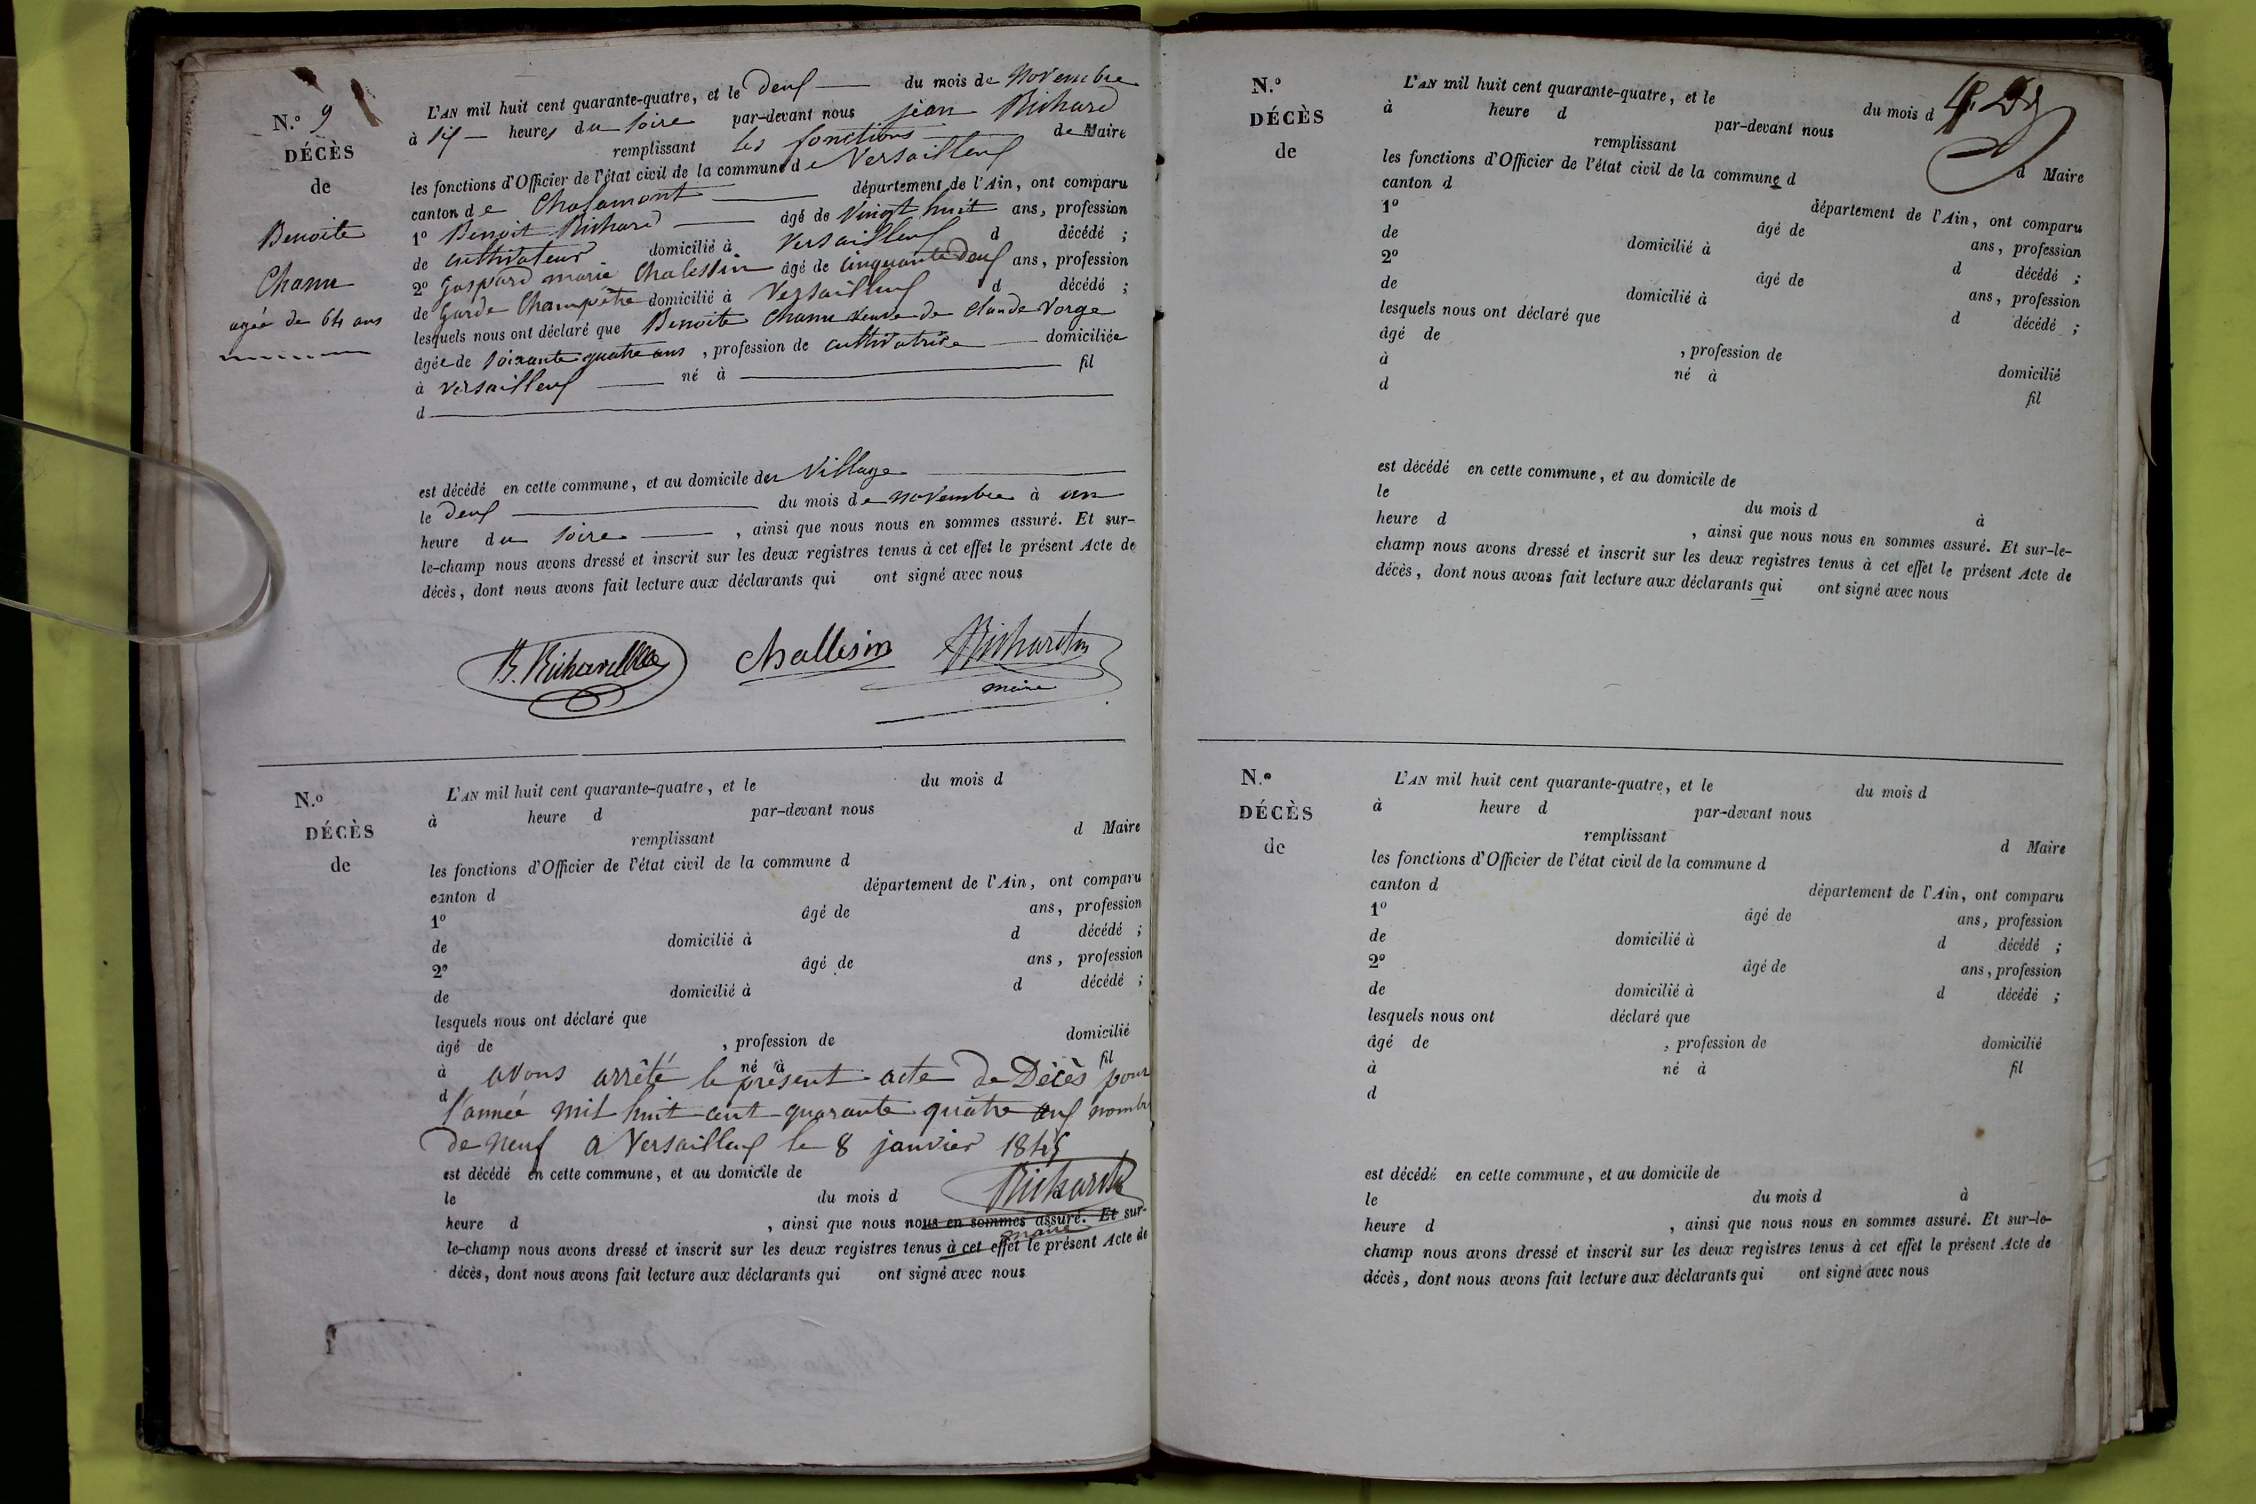 N.º 9
DÉCÈS
de
Benoite
Chanu
agée de 64 ans
L'AN mil huit cent quarante-quatre, et le deux du mois de Novembre
à six heures du soire par-devant nous jean Richard
remplissant les fonctions de Maire
les fonctions d'Officier de l'état civil de la commune de Versailleux
canton de Chalamont département de l'Ain, ont comparu
1º Benoit Richard âgé de Vingt huit ans, profession
de cultivateur domicilié à Versailleux d décédé ;
2º Gaspard marie Chalessin âgé de cinquante deux ans, profession
de Garde Champêtre domicilié à Versailleux d décédé ;
lesquels nous ont déclaré que Benoite Chanu veuve de Claude Vorge
âgée de soixante quatre ans , profession de cultivatrice domiciliée
à Versailleux né à fil
d
est décédé en cette commune, et au domicile du Village
le deux du mois de novembre à un
heure du soire , ainsi que nous nous en sommes assuré. Et sur-
le-champ nous avons dressé et inscrit sur les deux registres tenus à cet effet le présent Acte de
décès, dont nous avons fait lecture aux déclarants qui ont signé avec nous
B. Richard Challesin Richard
maire
N.º
DÉCÈS
de
L'AN mil huit cent quarante-quatre, et le du mois d
à heure d par-devant nous
remplissant d Maire
les fonctions d'Officier de l'état civil de la commune d
canton d département de l'Ain, ont comparu
1º âgé de ans, profession
de domicilié à d décédé ;
2º âgé de ans, profession
de domicilié à d décédé ;
lesquels nous ont déclaré que
âgé de , profession de domicilié
à né à fil
d
avons arrêté le présent acte de Décès pour
l'année mil huit cent quarante quatre au nombre
de neuf a Versailleux le 8 janvier 1845
est décédé en cette commune, et au domicile de
le du mois d Richard
heure d , ainsi que nous nous en sommes assuré. Et sur-
maire
le-champ nous avons dressé et inscrit sur les deux registres tenus à cet effet le présent Acte de
décès, dont nous avons fait lecture aux déclarants qui ont signé avec nous
N.º
DÉCÈS
de
L'AN mil huit cent quarante-quatre, et le du mois d
à heure d par-devant nous
remplissant d Maire
les fonctions d'Officier de l'état civil de la commune d
canton d département de l'Ain, ont comparu
1º âgé de ans, profession
de domicilié à d décédé ;
2º âgé de ans, profession
de domicilié à d décédé ;
lesquels nous ont déclaré que
âgé de , profession de domicilié
à né à fil
d
est décédé en cette commune, et au domicile de
le du mois d à
heure d , ainsi que nous nous en sommes assuré. Et sur-le-
champ nous avons dressé et inscrit sur les deux registres tenus à cet effet le présent Acte de
décès, dont nous avons fait lecture aux déclarants qui ont signé avec nous
N.º
DÉCÈS
de
L'AN mil huit cent quarante-quatre, et le du mois d
à heure d par-devant nous
remplissant d Maire
les fonctions d'Officier de l'état civil de la commune d
canton d département de l'Ain, ont comparu
1º âgé de ans, profession
de domicilié à d décédé ;
2º âgé de ans, profession
de domicilié à d décédé ;
lesquels nous ont déclaré que
âgé de , profession de domicilié
à né à fil
d
est décédé en cette commune, et au domicile de
le du mois d à
heure d , ainsi que nous nous en sommes assuré. Et sur-le-
champ nous avons dressé et inscrit sur les deux registres tenus à cet effet le présent Acte de
décès, dont nous avons fait lecture aux déclarants qui ont signé avec nous